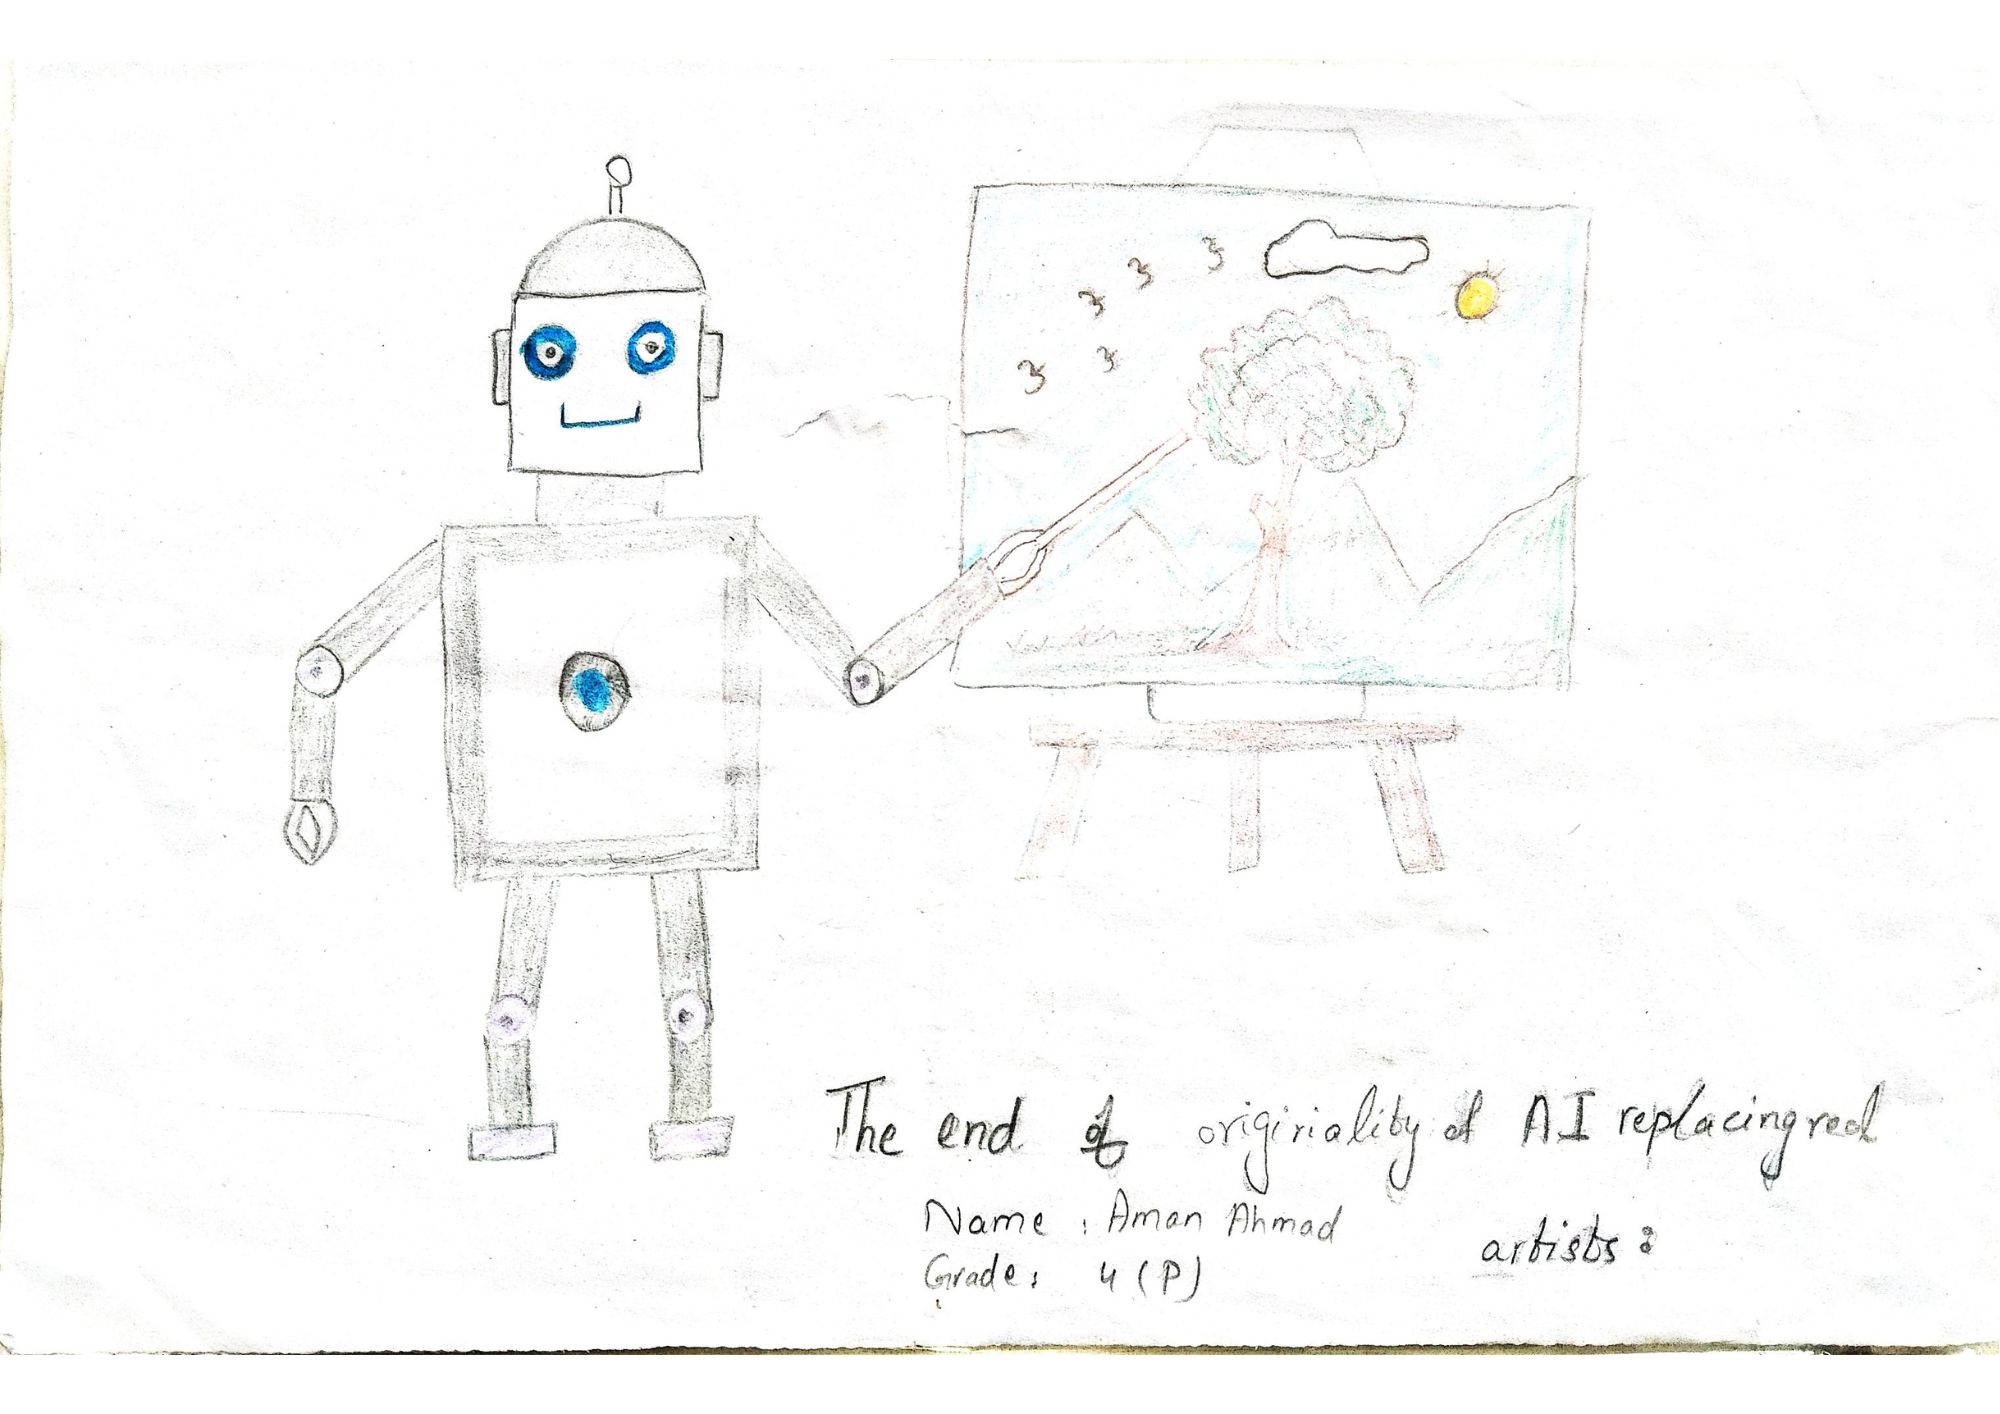 The end of originality of AI replacing real
artists :
Name : Aman Ahmad
Grade : 4 (P)